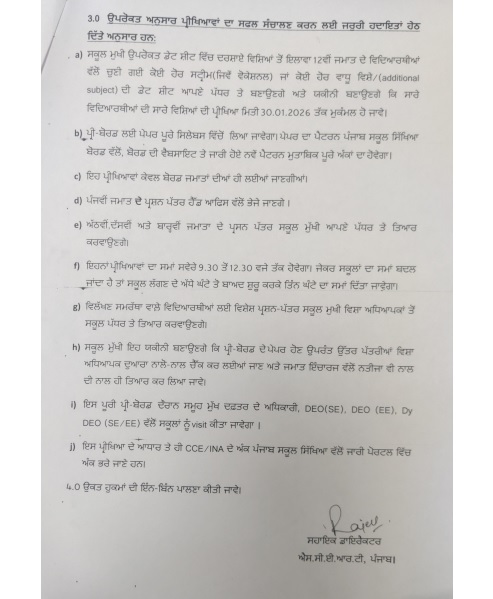 3.0 ਉਪਰੋਕਤ ਅਨੁਸਾਰ ਪ੍ਰੀਖਿਆਵਾਂ ਦਾ ਸਫਲ ਸੰਚਾਲਣ ਕਰਨ ਲਈ ਜਰੂਰੀ ਹਦਾਇਤਾਂ ਹੇਠ
ਦਿੱਤੇ ਅਨੁਸਾਰ ਹਨ:
a) ਸਕੂਲ ਮੁਖੀ ਉਪਰੋਕਤ ਡੇਟ ਸ਼ੀਟ ਵਿੱਚ ਦਰਸਾਏ ਵਿਸ਼ਿਆਂ ਤੋਂ ਇਲਾਵਾ 12ਵੀਂ ਜਮਾਤ ਦੇ ਵਿਦਿਆਰਥੀਆਂ
ਵੱਲੋਂ ਚੁਣੀ ਗਈ ਕੋਈ ਹੋਰ ਸਟ੍ਰੀਮ(ਜਿਵੇਂ ਵੋਕੇਸ਼ਨਲ) ਜਾਂ ਕੋਈ ਹੋਰ ਵਾਧੂ ਵਿਸ਼ੇ/(additional
subject) ਦੀ ਡੇਟ ਸ਼ੀਟ ਆਪਣੇ ਪੱਧਰ ਤੇ ਬਣਾਉਣਗੇ ਅਤੇ ਯਕੀਨੀ ਬਣਾਉਣਗੇ ਕਿ ਸਾਰੇ
ਵਿਦਿਆਰਥੀਆਂ ਦੀ ਸਾਰੇ ਵਿਸ਼ਿਆਂ ਦੀ ਪ੍ਰੀਖਿਆ ਮਿਤੀ 30.01.2026 ਤੱਕ ਮੁਕੰਮਲ ਹੋ ਜਾਵੇ।
b) ਪ੍ਰੀ-ਬੋਰਡ ਲਈ ਪੇਪਰ ਪੂਰੇ ਸਿਲੇਬਸ ਵਿੱਚੋਂ ਲਿਆ ਜਾਵੇਗਾ। ਪੇਪਰ ਦਾ ਪੈਟਰਨ ਪੰਜਾਬ ਸਕੂਲ ਸਿੱਖਿਆ
ਬੋਰਡ ਵੱਲੋਂ, ਬੋਰਡ ਦੀ ਵੈਬਸਾਇਟ ਤੇ ਜਾਰੀ ਹੋਏ ਨਵੇਂ ਪੈਟਰਨ ਮੁਤਾਬਿਕ ਪੂਰੇ ਅੰਕਾਂ ਦਾ ਹੋਵੇਗਾ।
c) ਇਹ ਪ੍ਰੀਖਿਆਵਾਂ ਕੇਵਲ ਬੋਰਡ ਜਮਾਤਾਂ ਦੀਆਂ ਹੀ ਲਈਆਂ ਜਾਣਗੀਆਂ।
d) ਪੰਜਵੀਂ ਜਮਾਤ ਦੇ ਪ੍ਰਸ਼ਨ ਪੱਤਰ ਹੈੱਡ ਆਫਿਸ ਵੱਲੋਂ ਭੇਜੇ ਜਾਣਗੇ ।
e) ਅੱਠਵੀਂ,ਦੱਸਵੀਂ ਅਤੇ ਬਾਰ੍ਹਵੀਂ ਜਮਾਤਾ ਦੇ ਪ੍ਰਸ਼ਨ ਪੱਤਰ ਸਕੂਲ ਮੁੱਖੀ ਆਪਣੇ ਪੱਧਰ ਤੇ ਤਿਆਰ
ਕਰਵਾਉਣਗੇ।
f) ਇਹਨਾਂ ਪ੍ਰੀਖਿਆਵਾਂ ਦਾ ਸਮਾਂ ਸਵੇਰੇ 9.30 ਤੋਂ 12.30 ਵਜੇ ਤੱਕ ਹੋਵੇਗਾ। ਜੇਕਰ ਸਕੂਲਾਂ ਦਾ ਸਮਾਂ ਬਦਲ
ਜਾਂਦਾ ਹੈ ਤਾਂ ਸਕੂਲ ਲੱਗਣ ਦੇ ਅੱਧੇ ਘੰਟੇ ਤੋਂ ਬਾਅਦ ਸ਼ੁਰੂ ਕਰਕੇ ਤਿੰਨ ਘੰਟੇ ਦਾ ਸਮਾਂ ਦਿੱਤਾ ਜਾਵੇਗਾ।
g) ਵਿਲੱਖਣ ਸਮਰੱਥਾ ਵਾਲੇ ਵਿਦਿਆਰਥੀਆਂ ਲਈ ਵਿਸ਼ੇਸ਼ ਪ੍ਰਸ਼ਨ-ਪੱਤਰ ਸਕੂਲ ਮੁਖੀ ਵਿਸ਼ਾ ਅਧਿਆਪਕਾਂ ਤੋਂ
ਸਕੂਲ ਪੱਧਰ ਤੇ ਤਿਆਰ ਕਰਵਾਉਣਗੇ।
h) ਸਕੂਲ ਮੁੱਖੀ ਇਹ ਯਕੀਨੀ ਬਣਾਉਣਗੇ ਕਿ ਪ੍ਰੀ-ਬੋਰਡ ਦੇ ਪੇਪਰ ਹੋਣ ਉਪਰੰਤ ਉੱਤਰ ਪੱਤਰੀਆਂ ਵਿਸ਼ਾ
ਅਧਿਆਪਕ ਦੁਆਰਾ ਨਾਲੋ-ਨਾਲ ਚੈੱਕ ਕਰ ਲਈਆਂ ਜਾਣ ਅਤੇ ਜਮਾਤ ਇੰਚਾਰਜ ਵੱਲੋਂ ਨਤੀਜਾ ਵੀ ਨਾਲ
ਦੀ ਨਾਲ ਹੀ ਤਿਆਰ ਕਰ ਲਿਆ ਜਾਵੇ।
i) ਇਸ ਪੂਰੀ ਪ੍ਰੀ-ਬੋਰਡ ਦੌਰਾਨ ਸਮੂਹ ਮੁੱਖ ਦਫ਼ਤਰ ਦੇ ਅਧਿਕਾਰੀ, DEO(SE), DEO (EE), Dy
DEO (SE/EE) ਵੱਲੋਂ ਸਕੂਲਾਂ ਨੂੰ visit ਕੀਤਾ ਜਾਵੇਗਾ ।
j) ਇਸ ਪ੍ਰੀਖਿਆ ਦੇ ਆਧਾਰ ਤੇ ਹੀ CCE/INA ਦੇ ਅੰਕ ਪੰਜਾਬ ਸਕੂਲ ਸਿੱਖਿਆ ਵੱਲੋਂ ਜਾਰੀ ਪੋਰਟਲ ਵਿੱਚ
ਅੰਕ ਭਰੇ ਜਾਣੇ ਹਨ।
4.0 ਉਕਤ ਹੁਕਮਾਂ ਦੀ ਇੰਨ-ਬਿੰਨ ਪਾਲਣਾ ਕੀਤੀ ਜਾਵੇ।
ਸਹਾਇਕ ਡਾਇਰੈਕਟਰ
ਐਸ.ਸੀ.ਈ.ਆਰ.ਟੀ, ਪੰਜਾਬ।